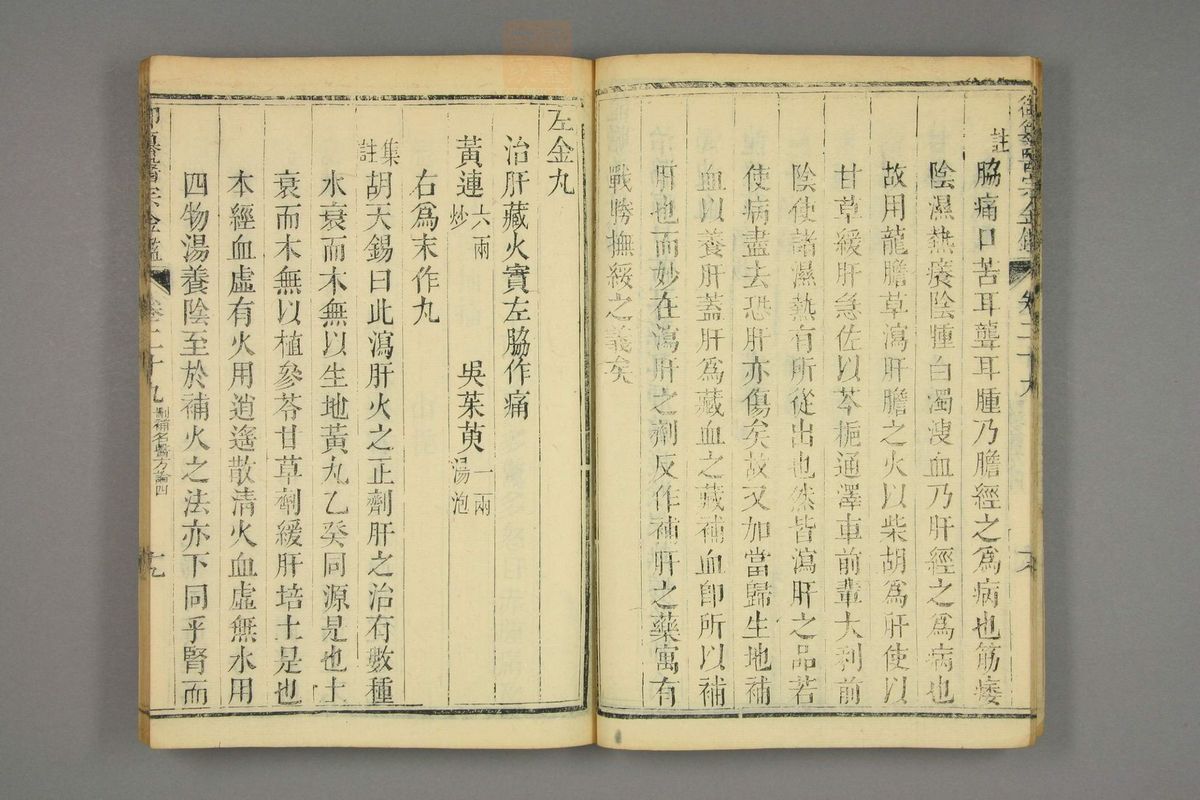 註 脇痛口苦耳聾耳腫乃膽經之爲病也筋痿
陰濕熱癢陰腫白濁溲血乃肝經之爲病也
故用龍膽草瀉肝膽之火以柴胡爲肝使以
甘草緩肝急佐以芩梔通澤車前輩大利前
陰使諸濕熱有所從出也然皆瀉肝之品若
使病盡去恐肝亦傷矣故又加當歸生地補
血以養肝蓋肝爲藏血之藏補血卽所以補
肝也而妙在瀉肝之劑反作補肝之藥寓有
戰勝撫綏之義矣
左金丸
治肝藏火實左脇作痛
黃連六兩炒 吳茱萸一兩湯泡
右爲末作丸
集註 胡天錫曰此瀉肝火之正劑肝之治有數種
水衰而木無以生地黃丸乙癸同源是也土
衰而木無以植參苓甘草劑緩肝培土是也
本經血虛有火用逍遙散清火血虛無水用
四物湯養陰至於補火之法亦下同乎腎而
卷二十九
刪補名醫方論四